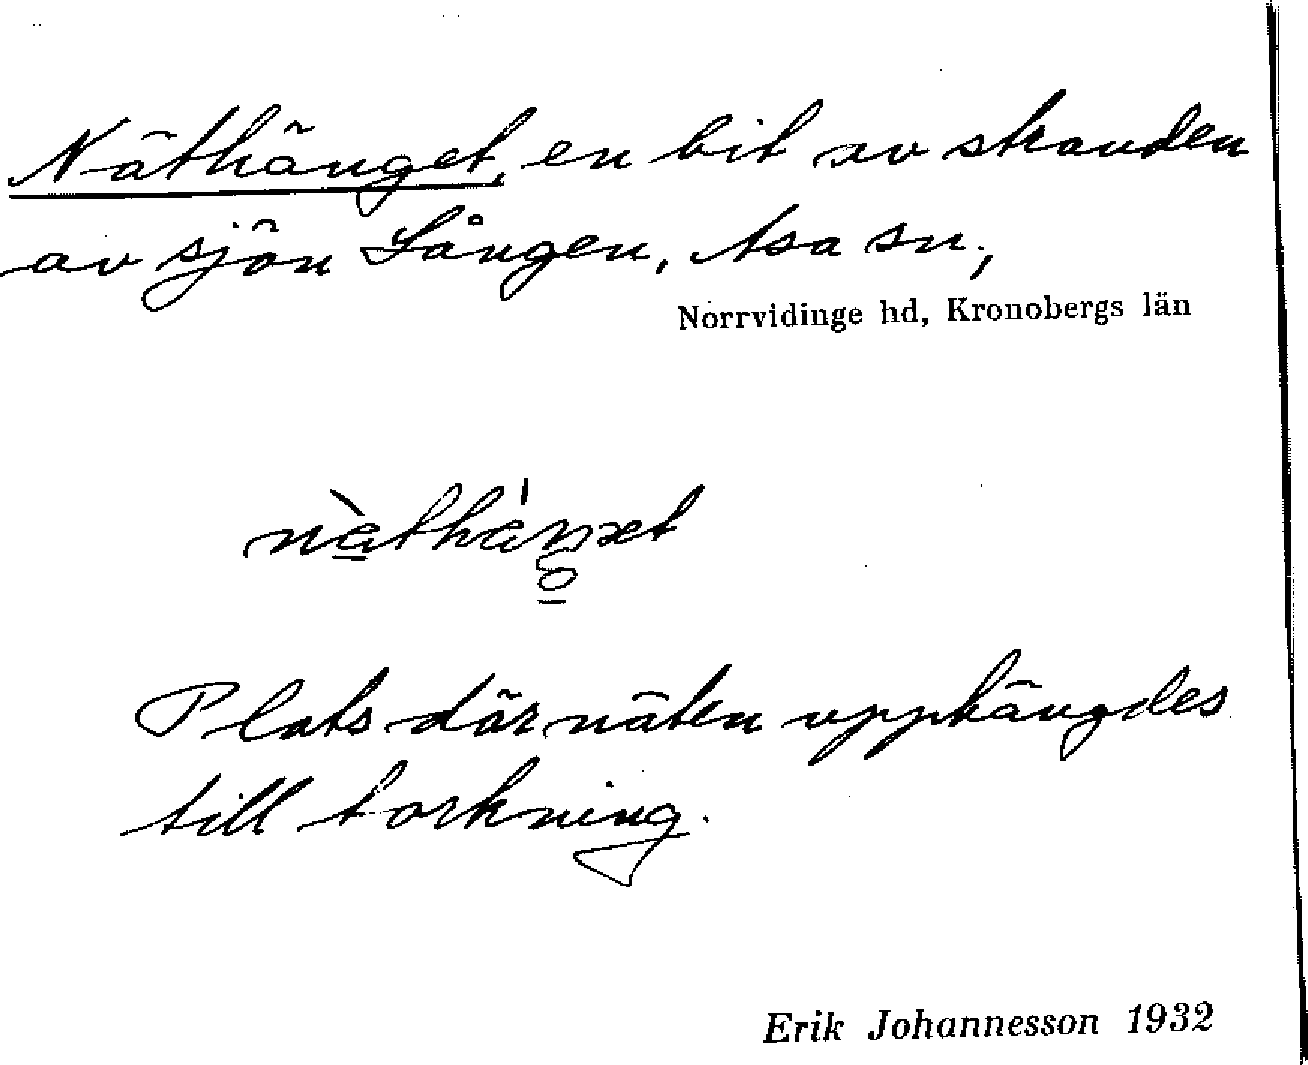 Näthänget, en bit av stranden
av sjön Lången, Asa sn,
Norrvidinge hd, Kronobergs län
Plats där näten upphängdes
till torkning.
Erik Johannesson 1932